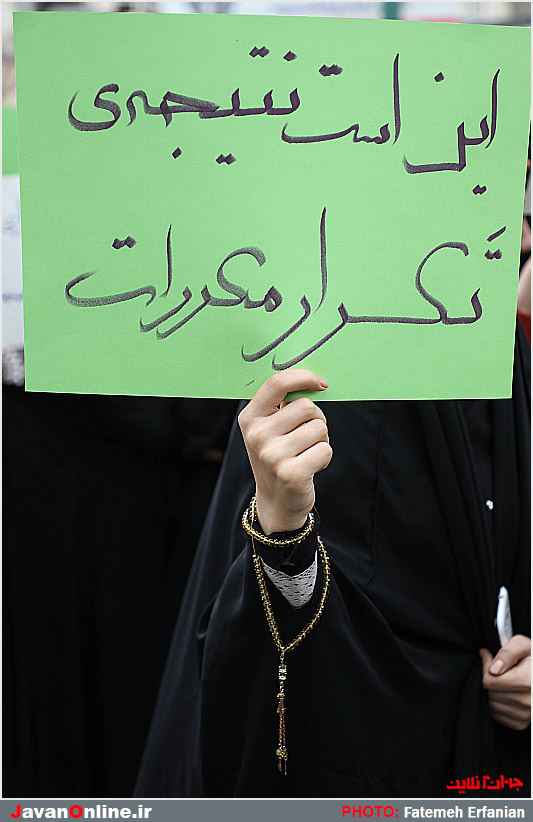 این است نتیجه‌ی
تکرارِ مکررات
جوان آنلاین
JavanOnline.ir
PHOTO: Fatemeh Erfanian